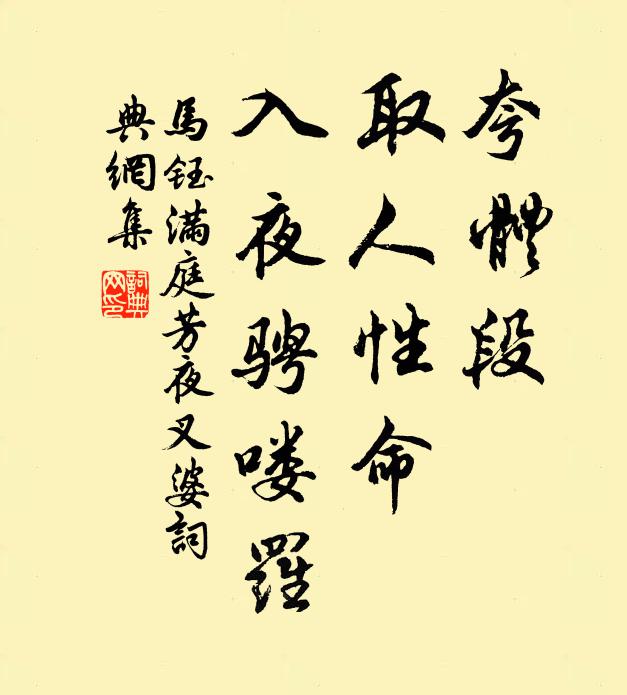 夸體段
取人性命
入夜骋喽羅
馬鈺滿庭芳夜叉婆詞
典網集
詞典網印